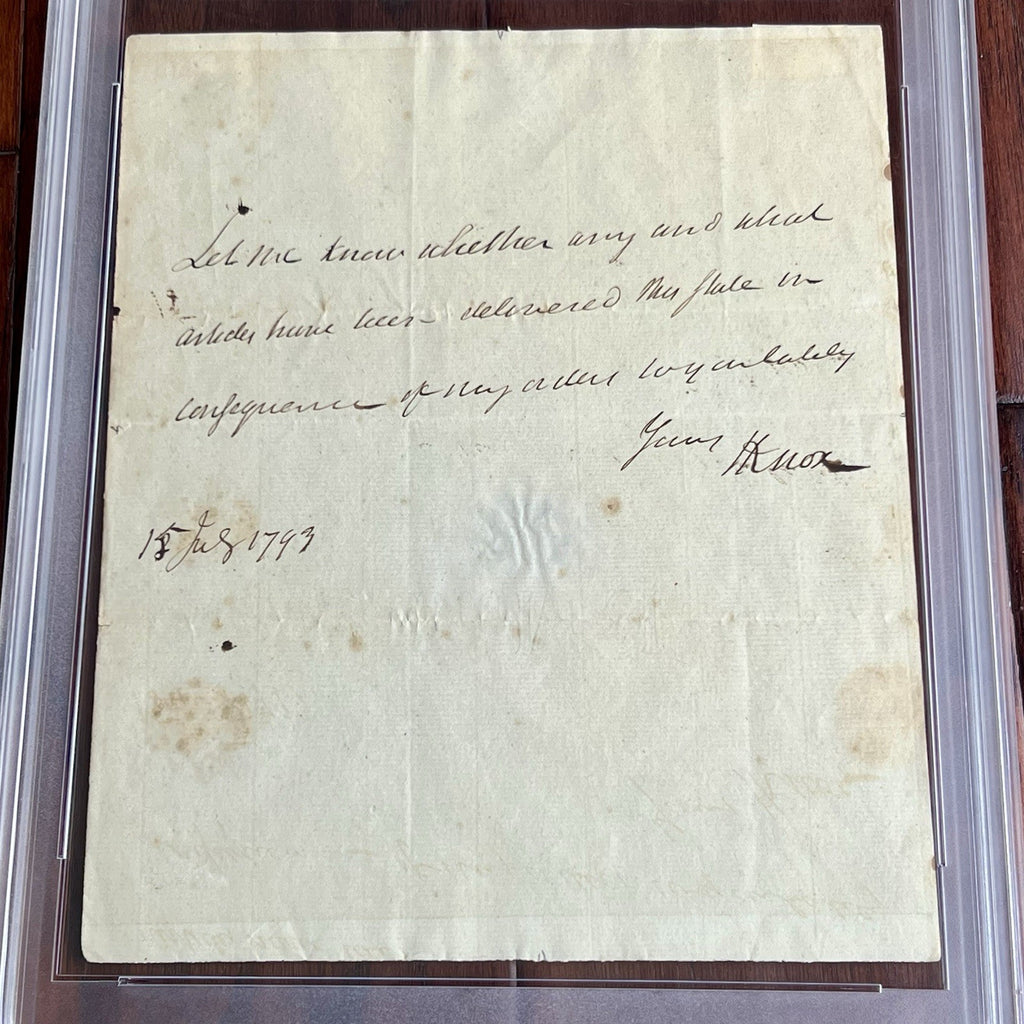 Let me know whether any and what
articles have been delivered this state in
consequence of my orders
Yours
HKnox
15 July 1793